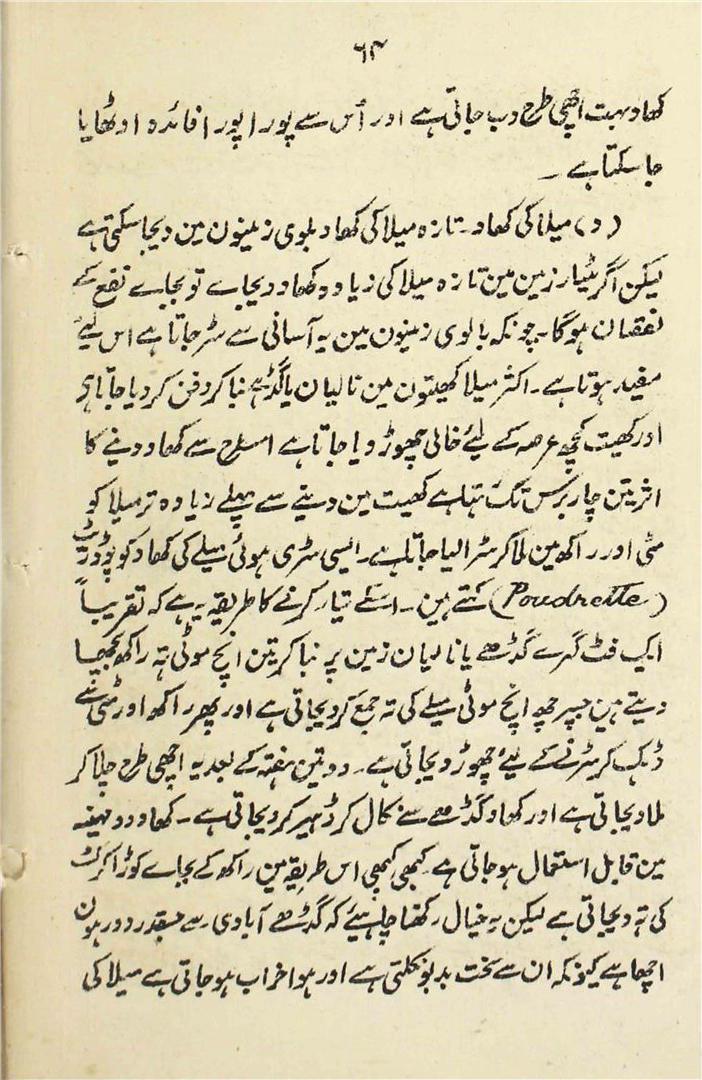 ۶۴
کھاد بہت اچھی طرح دب جاتی ہے اور اُس سے پورا پورا فائدہ اوٹھایا
جا سکتا ہے ۔
(د) میلا کی کھاد۔ تازہ میلا کی کھاد بلوی زمینون مین دیجا سکتی ہے
لیکن اگر مٹیار زمین مین تازہ میلا کی زیادہ کھاد دیجاے تو بجاے نفع کے
نقصان ہوگا۔ چونکہ بالوی زمینون مین یہ آسانی سے سڑ جاتا ہے اس لیے
مفید ہوتا ہے۔ اکثر میلا کھیتون مین نالیان یا گڈھے بنا کر دفن کر دیا جاتا ہی
اور کھیت کچھ عرصہ کے لیے خالی چھوڑ دیا جاتا ہے اسطرح سے کھاد دینے کا
اثر تین چار برس تک رہتا ہے کھیت مین دینے سے پہلے زیادہ تر میلا کو
مٹی اور راکھ مین ملا کر سڑا لیا جاتا ہے۔ ایسی سڑی ہوئی میلے کی کھاد کو پوڈریٹ
(Poudrette) کہتے ہین۔ اسکے تیار کرنے کا طریقہ یہ ہے کہ تقریباً
ایک فٹ گہرے گڈھے یا نالیان زمین پر بنا کر تین انچ موٹی تہ راکھ بچھا
دیتے ہین جسپر چھ انچ موٹی میلے کی تہ جمع کر دیجاتی ہے اور پھر راکھ اور مٹی سے
ڈہک کر سڑنے کے لیئے چھوڑ دیجاتی ہے۔ دو تین ہفتہ کے بعد یہ اچھی طرح چلا کر
ملا دیجاتی ہے اور کھاد گڈھے سے نکال کر ڈہیر کر دیجاتی ہے۔ کھاد دو مہینہ
مین قابل استعمال ہو جاتی ہے کبھی کبھی اس طریقہ مین راکھ کے بجاے کوڑا کرکٹ
کی تہ دیجاتی ہے لیکن یہ خیال رکھنا چاہیئے کہ گڈھے آبادی سے جسقدر دور ہون
اچھا ہے کیونکہ ان سے سخت بدبو نکلتی ہے اور ہوا خراب ہو جاتی ہے میلا کی